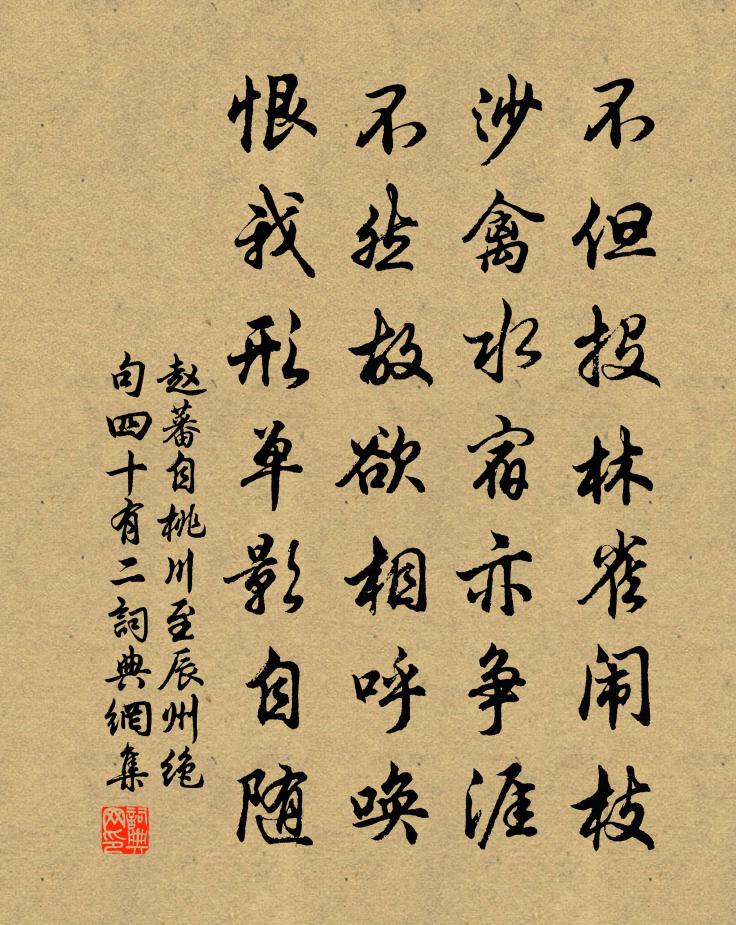 不但投林雀闹枝
沙禽水宿亦争涯
不然故欲相呼唤
恨我形单影自随
赵蕃自桃川至辰州绝
句四十有二詞典網集
詞典网印